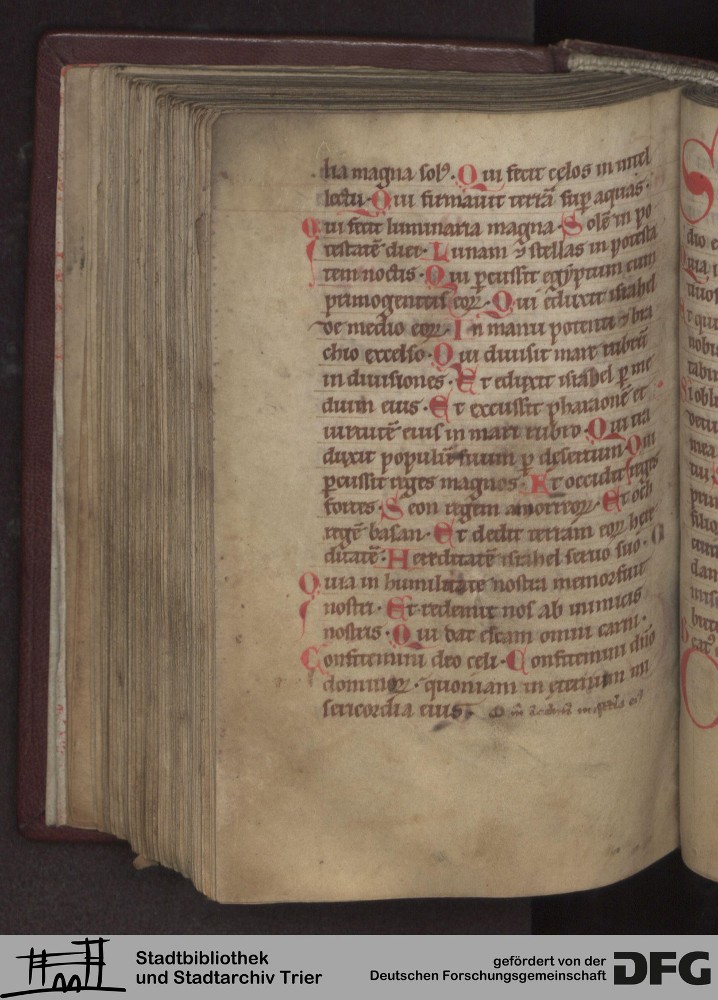 lia magna solꝰ. Qui fecit celos in intel
lectu. Qui firmauit terrā suꝑ aquas.
Qui fecit luminaria magna. Solē in po
testatē diei. Lunam ⁊ stellas in potesta
tem noctis. Qui ꝑcussit egyptum cum
primogenitis eoꝝ. Qui eduxit israhel
de medio eoꝝ. In manu potenti ⁊ bra
chio excelso. Qui diuisit mare rubrū
in diuisiones. Et eduxit israhel ꝑ me
dium eius. Et excussit pharaonē et
uirtutē eius in mari rubro. Qui tra
duxit populū suum ꝑ desertum. Qui
ꝑcussit reges magnos. Et occidit reges
fortes. Seon regem amorreoꝝ. Et och
regē basan. Et dedit terram eoꝝ here
ditatē. Hereditatē israhel seruo suo.
Quia in humilitate nostra memor fuit
nostri. Et redemit nos ab inimicis
nostris. Qui dat escam omni carni.
Confitemini deo celi. Confitemini dño
dominoꝝ. quoniam in eternum mi
sericordia eius.
Stadtbibliothek
und Stadtarchiv Trier
gefördert von der
Deutschen Forschungsgemeinschaft
DFG